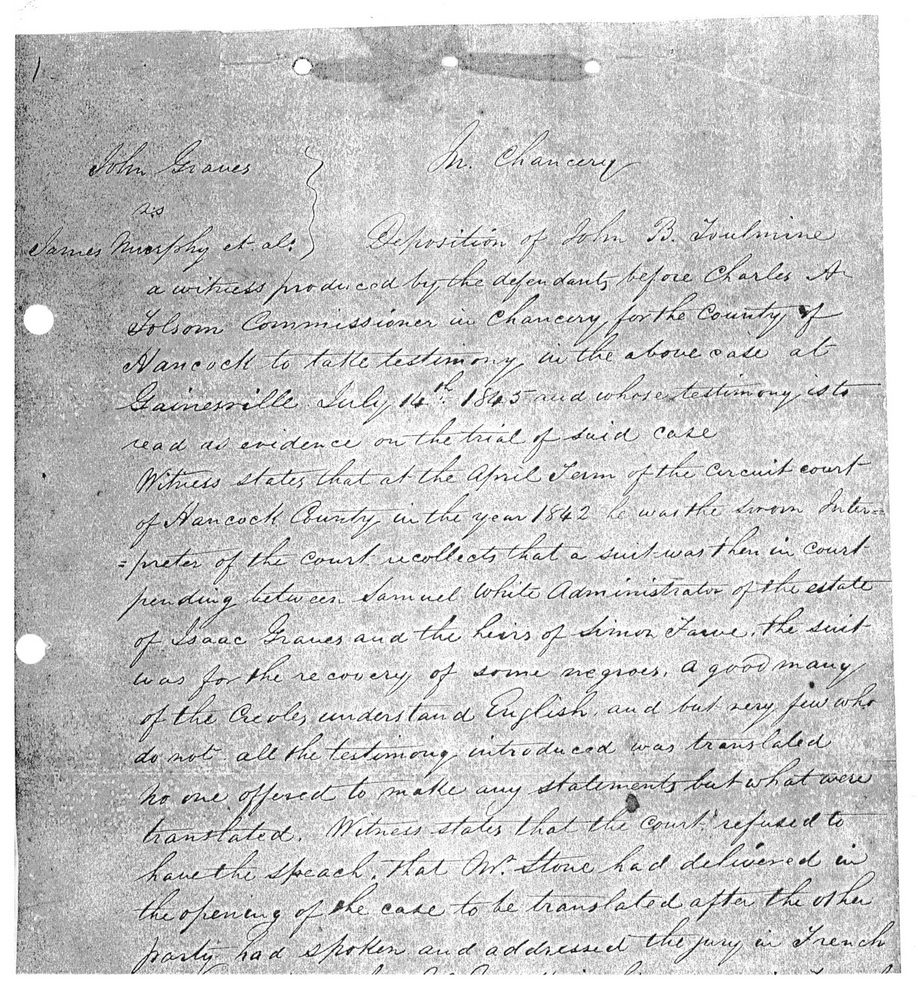 1
John Graves
vs
James Murphy et al:
In Chancery
Deposition of John B. Toulmine
a witness produced by the defendants before Charles A
Folsom Commissioner in Chancery for the County of
Hancock to take testimony in the above case at
Gainesville July 14th 1845 and whose testimony is to
read as evidence on the trial of said case
Witness states that at the April Term of the circuit court
of Hancock County in the year 1842 he was the sworn Inter=
=preter of the court recollects that a suit was then in court
pending between Samuel White Administrator of the estate
of Isaac Graves and the heirs of Simon Favre. the suit
was for the recovery of some negroes. a good many
of the Creoles understand English. and but very few who
do not all the testimony introduced was translated
no one offered to make any statements but what were
translated. Witness states that the court refused to
have the speach, that Mr. Stone had delivered in
the opening of the case to be translated after the other
party had spoken and addressed the jury in French